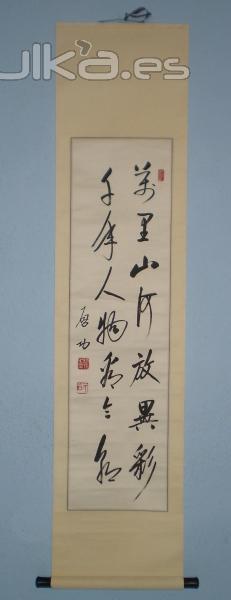 ulka.es
萬里山河放異彩
千年人物看今朝
启功